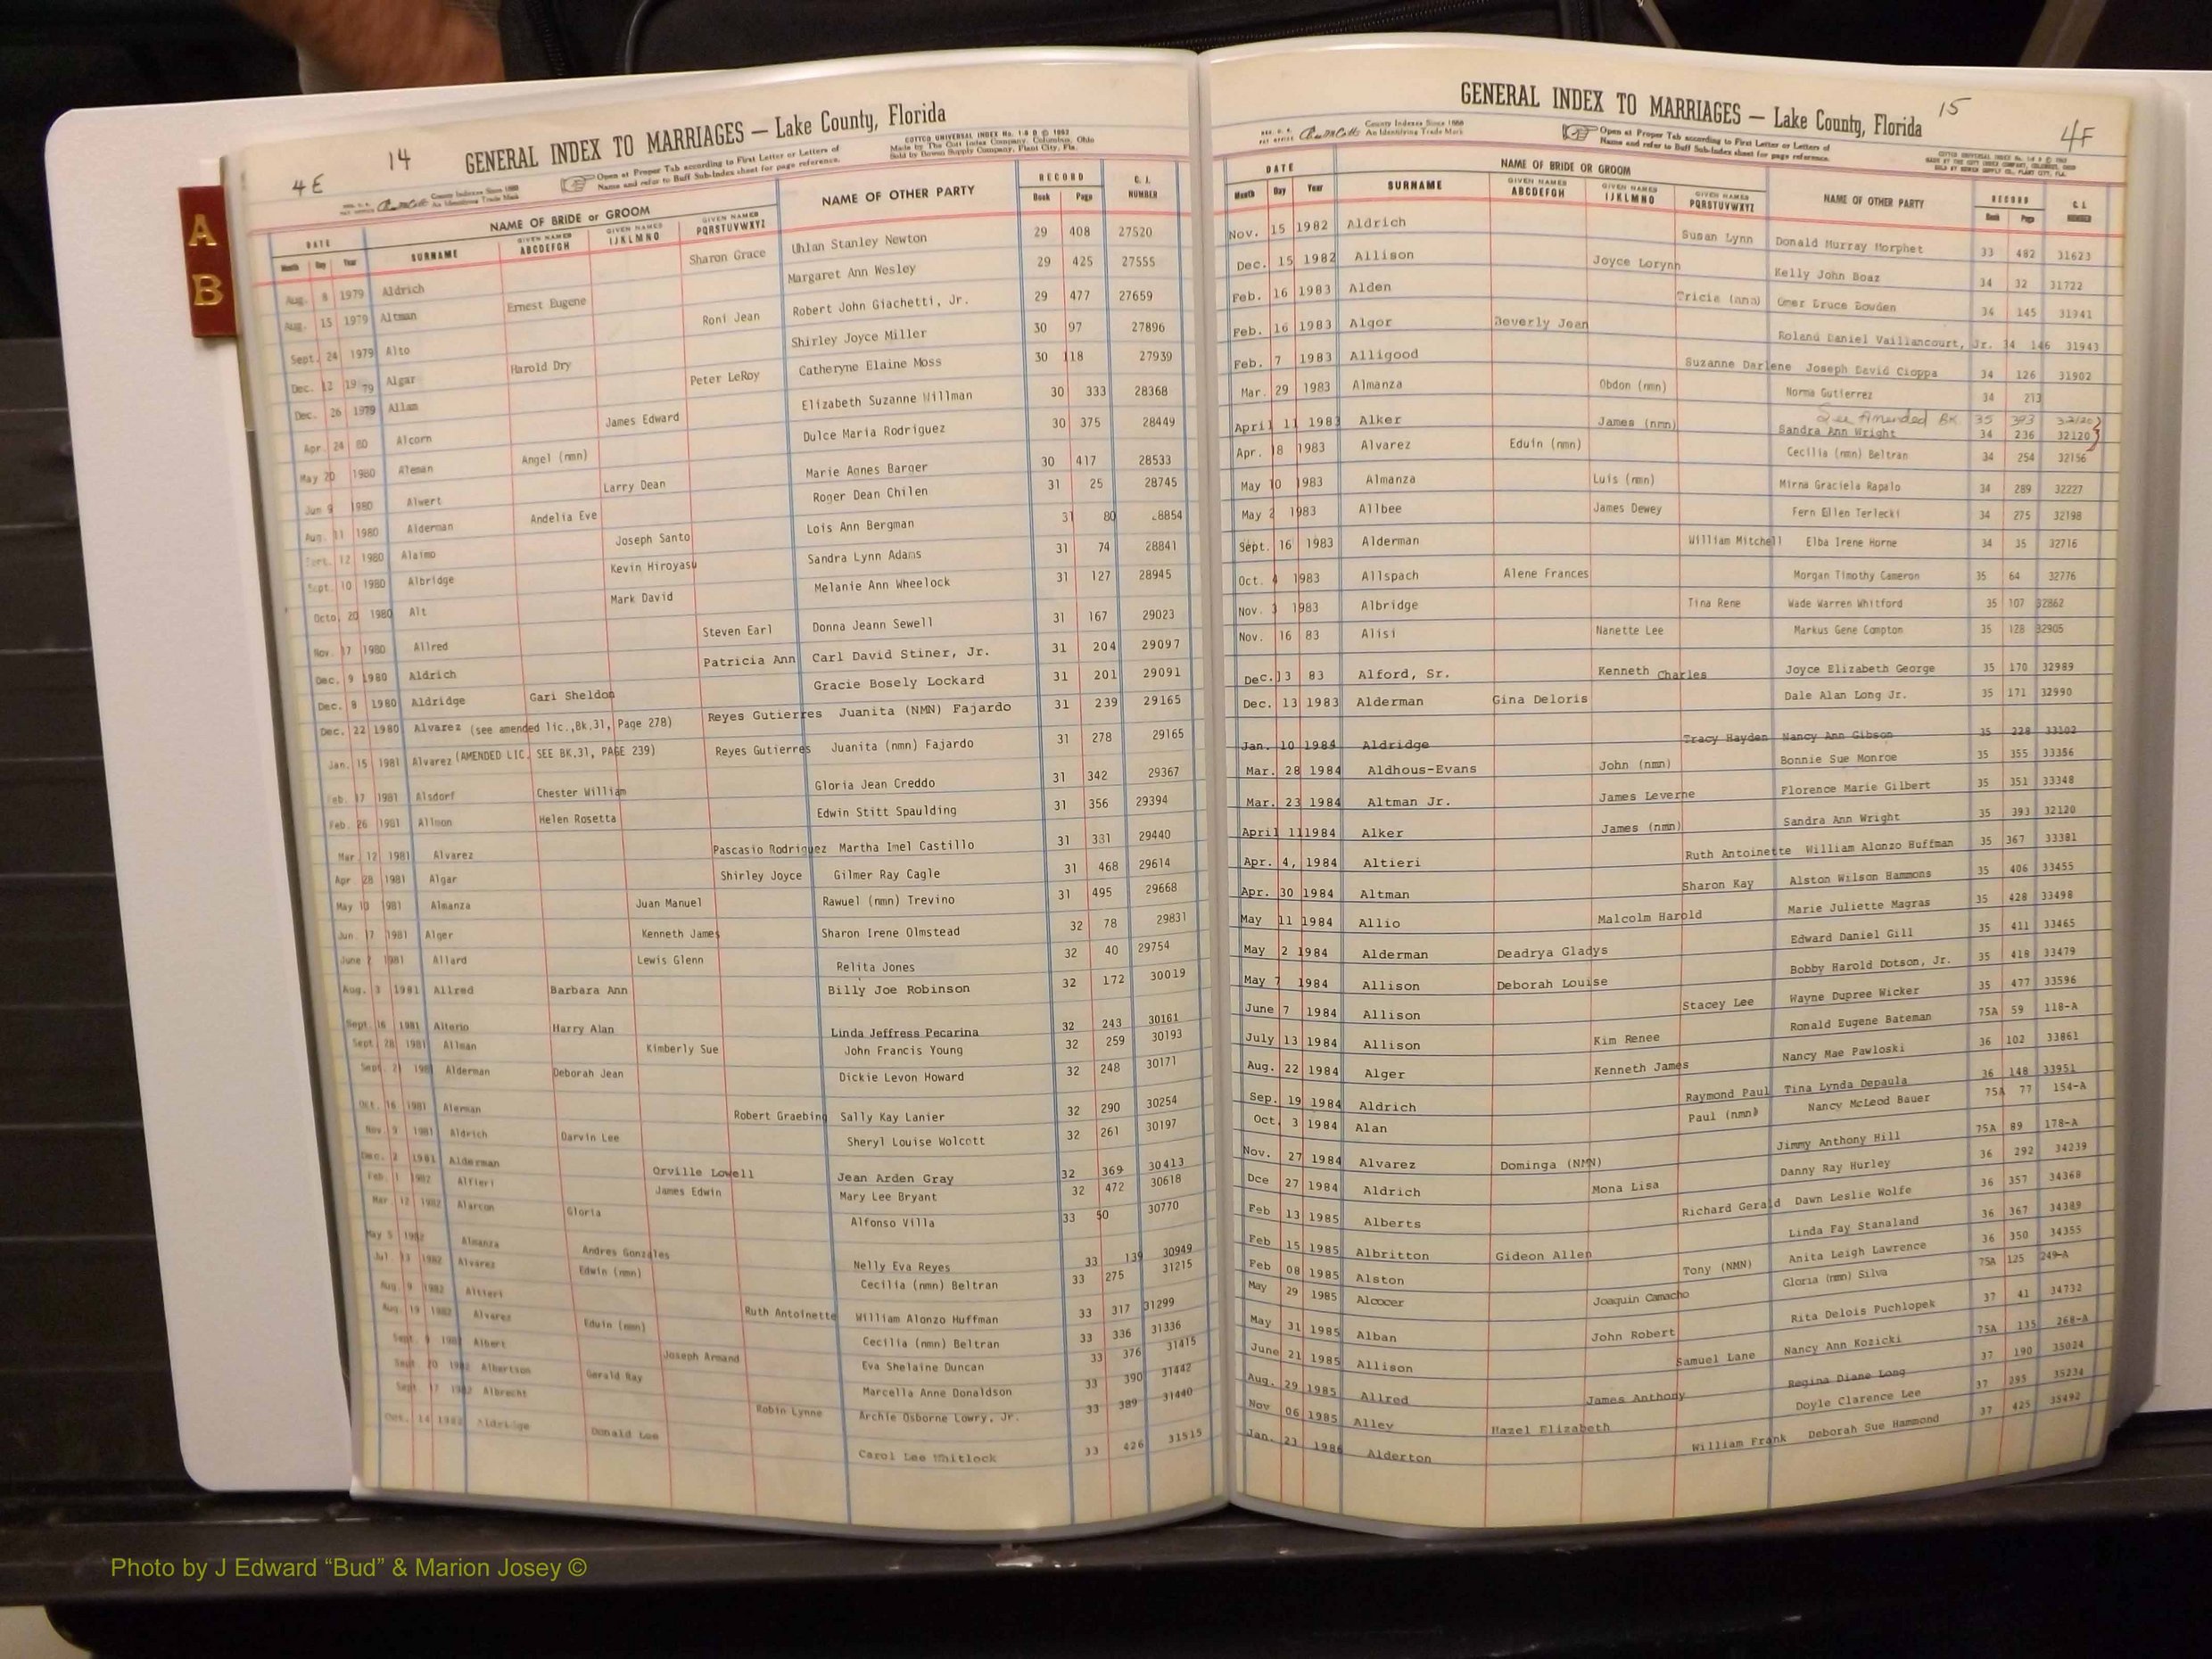 A
B
4E
14
GENERAL INDEX TO MARRIAGES — Lake County, Florida
County Indexes Since 1888
An Identifying Trade Mark
Open at Proper Tab according to First Letter or Letters of
Name and refer to Buff Sub-Index sheet for page reference.
COTTCO UNIVERSAL INDEX
Made by The Cott Index Company, Columbus, Ohio
Sold by Bowen Supply Company, Plant City, Fla.
DATE NAME OF BRIDE or GROOM NAME OF OTHER PARTY RECORD C. I. NUMBER
Month Day Year SURNAME GIVEN NAMES ABCDEFGH GIVEN NAMES IJKLMNO GIVEN NAMES PQRSTUVWXYZ Book Page
Aug. 8 1979 Aldrich Sharon Grace Uhlan Stanley Newton 29 408 27520
Aug. 15 1979 Altman Ernest Eugene Margaret Ann Wesley 29 425 27555
Sept. 24 1979 Alto Roni Jean Robert John Giachetti, Jr. 29 477 27659
Dec. 12 1979 Algar Harold Dry Shirley Joyce Miller 30 97 27896
Dec. 26 1979 Allan Peter LeRoy Catheryne Elaine Moss 30 118 27939
Apr. 24 80 Alcorn James Edward Elizabeth Suzanne Willman 30 333 28368
May 20 1980 Aleman Angel (nmn) Dulce Maria Rodriguez 30 375 28449
Jun 9 1980 Alwert Larry Dean Marie Agnes Barger 30 417 28533
Aug. 11 1980 Alderman Andelia Eve Roger Dean Chilen 31 25 28745
12 1980 Alaimo Joseph Santo Lois Ann Bergman 31 80 8854
Sept. 10 1980 Albridge Kevin Hiroyasu Sandra Lynn Adams 31 74 28841
Octo. 20 1980 Alt Mark David Melanie Ann Wheelock 31 127 28945
Nov. 17 1980 Allred Steven Earl Donna Jeann Sewell 31 167 29023
Dec. 9 1980 Aldrich Patricia Ann Carl David Stiner, Jr. 31 204 29097
Dec. 8 1980 Aldridge Gari Sheldon Gracie Bosely Lockard 31 201 29091
Dec. 22 1980 Alvarez (see amended lic.,Bk.31, Page 278) Reyes Gutierres Juanita (NMN) Fajardo 31 239 29165
Jan. 15 1981 Alvarez (AMENDED LIC. SEE BK.31, PAGE 239) Reyes Gutierres Juanita (nmn) Fajardo 31 278 29165
Feb. 17 1981 Alsdorf Chester William Gloria Jean Creddo 31 342 29367
Feb. 26 1981 Allmon Helen Rosetta Edwin Stitt Spaulding 31 356 29394
Mar 12 1981 Alvarez Pascasio Rodriguez Martha Imel Castillo 31 331 29440
Apr 28 1981 Algar Shirley Joyce Gilmer Ray Cagle 31 468 29614
May 10 1981 Almanza Juan Manuel Rawuel (nmn) Trevino 31 495 29668
Jun. 17 1981 Alger Kenneth James Sharon Irene Olmstead 32 78 29831
June 2 1981 Allard Lewis Glenn Relita Jones 32 40 29754
Aug. 3 1981 Allred Barbara Ann Billy Joe Robinson 32 172 30019
Sept. 16 1981 Alterio Harry Alan Linda Jeffress Pecarina 32 243 30161
Sept. 28 1981 Allman Kimberly Sue John Francis Young 32 259 30193
Sept. 21 1981 Alderman Deborah Jean Dickie Levon Howard 32 248 30171
Oct. 16 1981 Alerman Robert Graebing Sally Kay Lanier 32 290 30254
Nov. 9 1981 Aldrich Darvin Lee Sheryl Louise Wolcott 32 261 30197
Dec. 2 1981 Alderman Orville Lowell Jean Arden Gray 32 369 30413
Feb. 1 1982 Alfieri James Edwin Mary Lee Bryant 32 472 30618
Mar. 12 1982 Alarcon Gloria Alfonso Villa 33 50 30770
May 5 1982 Almanza Andres Gonzales Nelly Eva Reyes 33 139 30949
Jul. 13 1982 Alvarez Edwin (nmn) Cecilia (nmn) Beltran 33 275 31215
Aug. 9 1982 Altieri Ruth Antoinette William Alonzo Huffman 33 317 31299
Aug. 19 1982 Alvarez Eduin (nmn) Cecilia (nmn) Beltran 33 336 31336
Sept. 9 1982 Albert Joseph Armand Eva Shelaine Duncan 33 376 31415
Sept. 20 1982 Albertson Gerald Ray Marcella Anne Donaldson 33 390 31442
Sept. 17 1982 Albrecht Robin Lynne Archie Osborne Lowry, Jr. 33 389 31440
Oct. 14 1982 Aldridge Donald Lee Carol Lee Whitlock 33 426 31515
GENERAL INDEX TO MARRIAGES — Lake County, Florida
15
4F
County Indexes Since 1888
An Identifying Trade Mark
Open at Proper Tab according to First Letter or Letters of
Name and refer to Buff Sub-Index sheet for page reference.
DATE NAME OF BRIDE OR GROOM NAME OF OTHER PARTY RECORD C. I. NUMBER
Month Day Year SURNAME GIVEN NAMES ABCDEFGH GIVEN NAMES IJKLMNO GIVEN NAMES PQRSTUVWXYZ Book Page
Nov. 15 1982 Aldrich Susan Lynn Donald Murray Morphet 33 482 31623
Dec. 15 1982 Allison Joyce Lorynn Kelly John Boaz 34 32 31722
Feb. 16 1983 Alden Tricia (ana) Omer Bruce Bowden 34 145 31941
Feb. 16 1983 Algor Beverly Jean Roland Daniel Vaillancourt, Jr. 34 146 31943
Feb. 7 1983 Alligood Suzanne Darlene Joseph David Cioppa 34 126 31902
Mar. 29 1983 Almanza Obdon (nmn) Norma Gutierrez 34 213
See Amended BK 35 393 32120
April 11 1983 Alker James (nmn) Sandra Ann Wright 34 236 32120
Apr. 18 1983 Alvarez Eduin (nmn) Cecilia (nmn) Beltran 34 254 32156
May 10 1983 Almanza Luis (nmn) Mirna Graciela Rapalo 34 289 32227
May 2 1983 Allbee James Dewey Fern Ellen Terlecki 34 275 32198
Sept. 16 1983 Alderman William Mitchell Elba Irene Horne 34 35 32716
Oct. 4 1983 Allspach Alene Frances Morgan Timothy Cameron 35 64 32776
Nov. 3 1983 Albridge Tina Rene Wade Warren Whitford 35 107 32862
Nov. 16 83 Alisi Nanette Lee Markus Gene Compton 35 128 32905
Dec. 13 83 Alford, Sr. Kenneth Charles Joyce Elizabeth George 35 170 32989
Dec. 13 1983 Alderman Gina Deloris Dale Alan Long Jr. 35 171 32990
Jan. 10 1984 Aldridge Tracy Hayden Nancy Ann Gibson 35 228 33102
Mar. 28 1984 Aldhous-Evans John (nmn) Bonnie Sue Monroe 35 355 33356
Mar. 23 1984 Altman Jr. James Leverne Florence Marie Gilbert 35 351 33348
April 11 1984 Alker James (nmn) Sandra Ann Wright 35 393 32120
Apr. 4, 1984 Altieri Ruth Antoinette William Alonzo Huffman 35 367 33381
Apr. 30 1984 Altman Sharon Kay Alston Wilson Hammons 35 406 33455
May 11 1984 Allio Malcolm Harold Marie Juliette Magras 35 428 33498
May 2 1984 Alderman Deadrya Gladys Edward Daniel Gill 35 411 33465
May 7 1984 Allison Deborah Louise Bobby Harold Dotson, Jr. 35 418 33479
June 7 1984 Allison Stacey Lee Wayne Dupree Wicker 35 477 33596
July 13 1984 Allison Kim Renee Ronald Eugene Bateman 75A 59 118-A
Aug. 22 1984 Alger Kenneth James Nancy Mae Pawloski 36 102 33861
Sep. 19 1984 Aldrich Raymond Paul Tina Lynda Depaula 36 148 33951
Oct 3 1984 Alan Paul (nmn) Nancy McLeod Bauer 75A 77 154-A
Nov. 27 1984 Alvarez Dominga (NMN) Jimmy Anthony Hill 75A 89 178-A
Dce 27 1984 Aldrich Mona Lisa Danny Ray Hurley 36 292 34239
Feb 13 1985 Alberts Richard Gerald Dawn Leslie Wolfe 36 357 34368
Feb 15 1985 Albritton Gideon Allen Linda Fay Stanaland 36 367 34389
Feb 08 1985 Alston Tony (NMN) Anita Leigh Lawrence 36 350 34355
May 29 1985 Alcocer Joaquin Camacho Gloria (nmn) Silva 75A 125 249-A
May 31 1985 Alban John Robert Rita Delois Puchlopek 37 41 34732
June 21 1985 Allison Samuel Lane Nancy Ann Kozicki 75A 135 268-A
Aug. 29 1985 Allred James Anthony Regina Diane Long 37 190 35024
Nov 06 1985 Alley Hazel Elizabeth Doyle Clarence Lee 37 295 35234
Jan. 23 1986 Alderton William Frank Deborah Sue Hammond 37 425 35492
Photo by J Edward “Bud” & Marion Josey ©